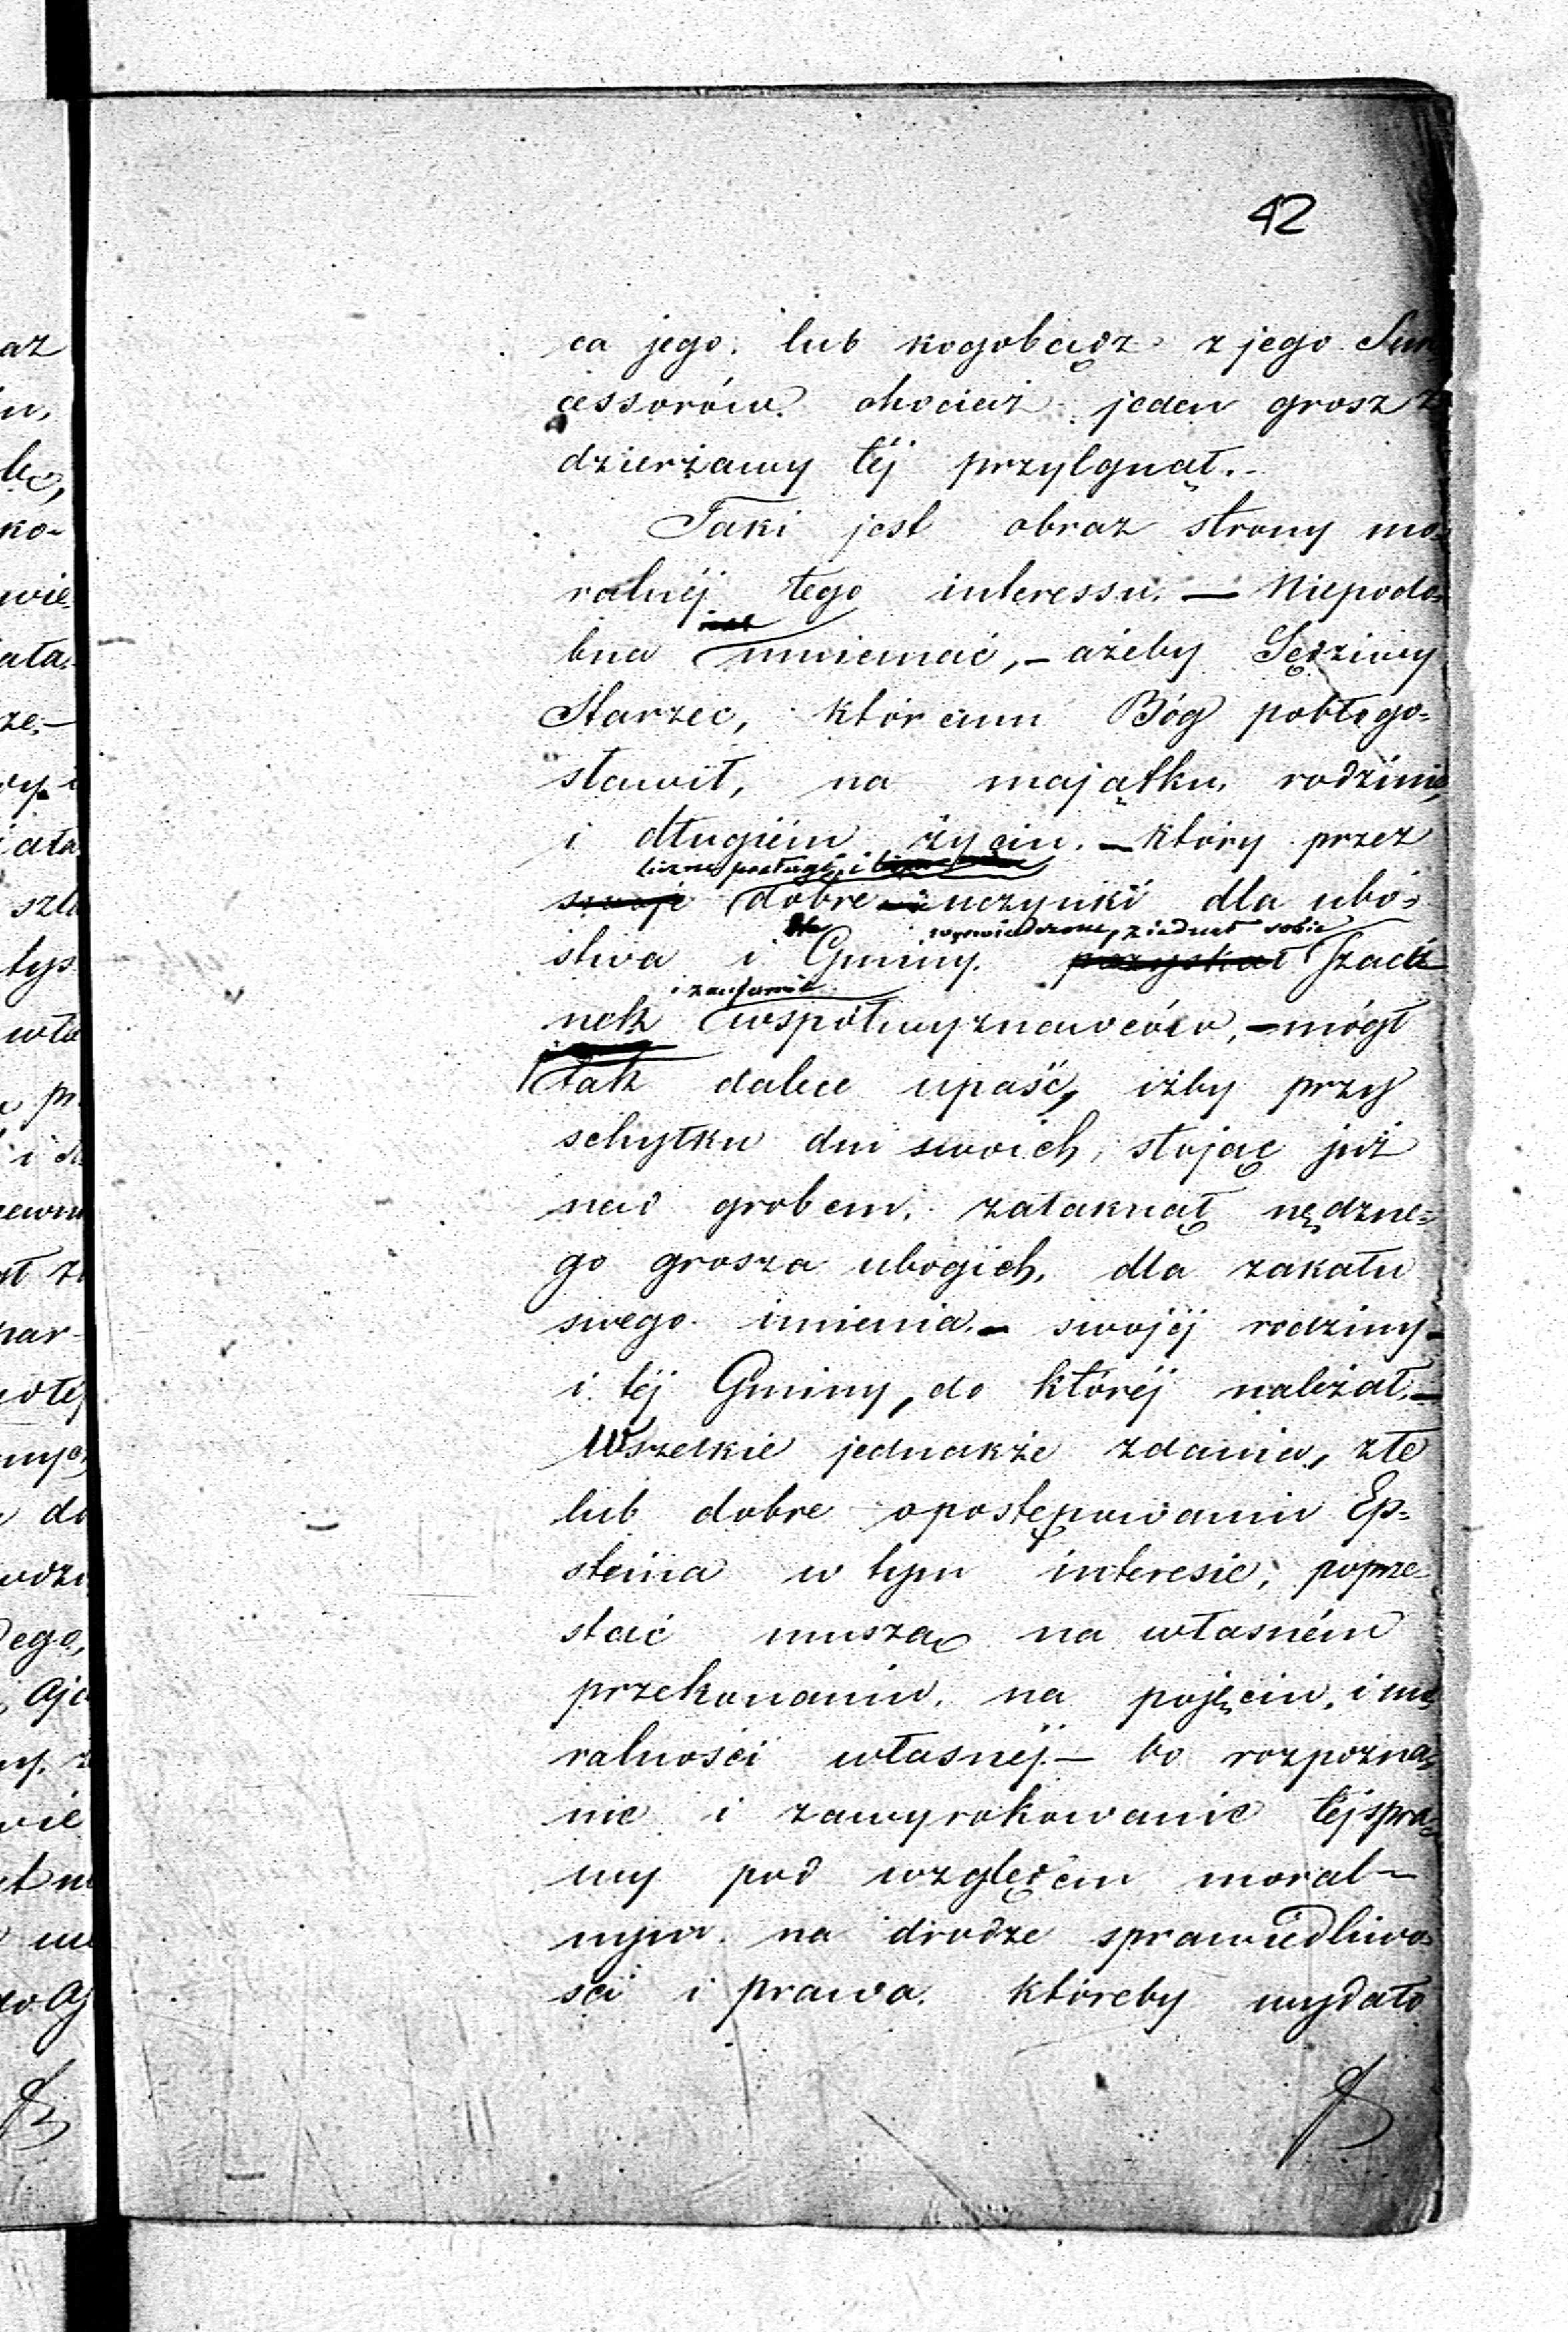 42
ca jego. lub kogobądz z jego Suk
cessorów. chociaż jeden grosz z
dzierżawy téj przylgnął.-
Taki jest obraz strony mo=
ralnéj tego interessu. — Niepodo=
bna mniemać,- ażeby Sędziwy
Starzec, któremu Bóg pobłogo=
sławił, na majątku, rodzinie,
i długiém życiu. - który przez
liczne posługi, i
swoje dobre uczynki dla ubó=
dla wyświadczone, zjednał sobie
stwa i Gminy. pozyskał szacu
i zaufanie
nek współwyznawców, - mógł
tak dalece upaść, iżby przy
schyłku dni swoich, stojąc już
nad grobem. załaknął nędzne=
go grosza ubogich, dla zakału
swego imienia.- swojéj rodziny-
i téj Gminy, do któréj należał.-
Wszelkie jednakże zdania, złe
lub dobre o postępowaniu Ep=
steina w tym interesie, poprze
stać muszą na własném
przekonaniu, na pojęciu, i mo
ralności własnéj.- bo rozpozna=
nie i zawyrokowanie téj spra=
wy pod względem moral-
nym. na drodze sprawiedliwo=
ści i prawa. któreby wydało
az
ko-